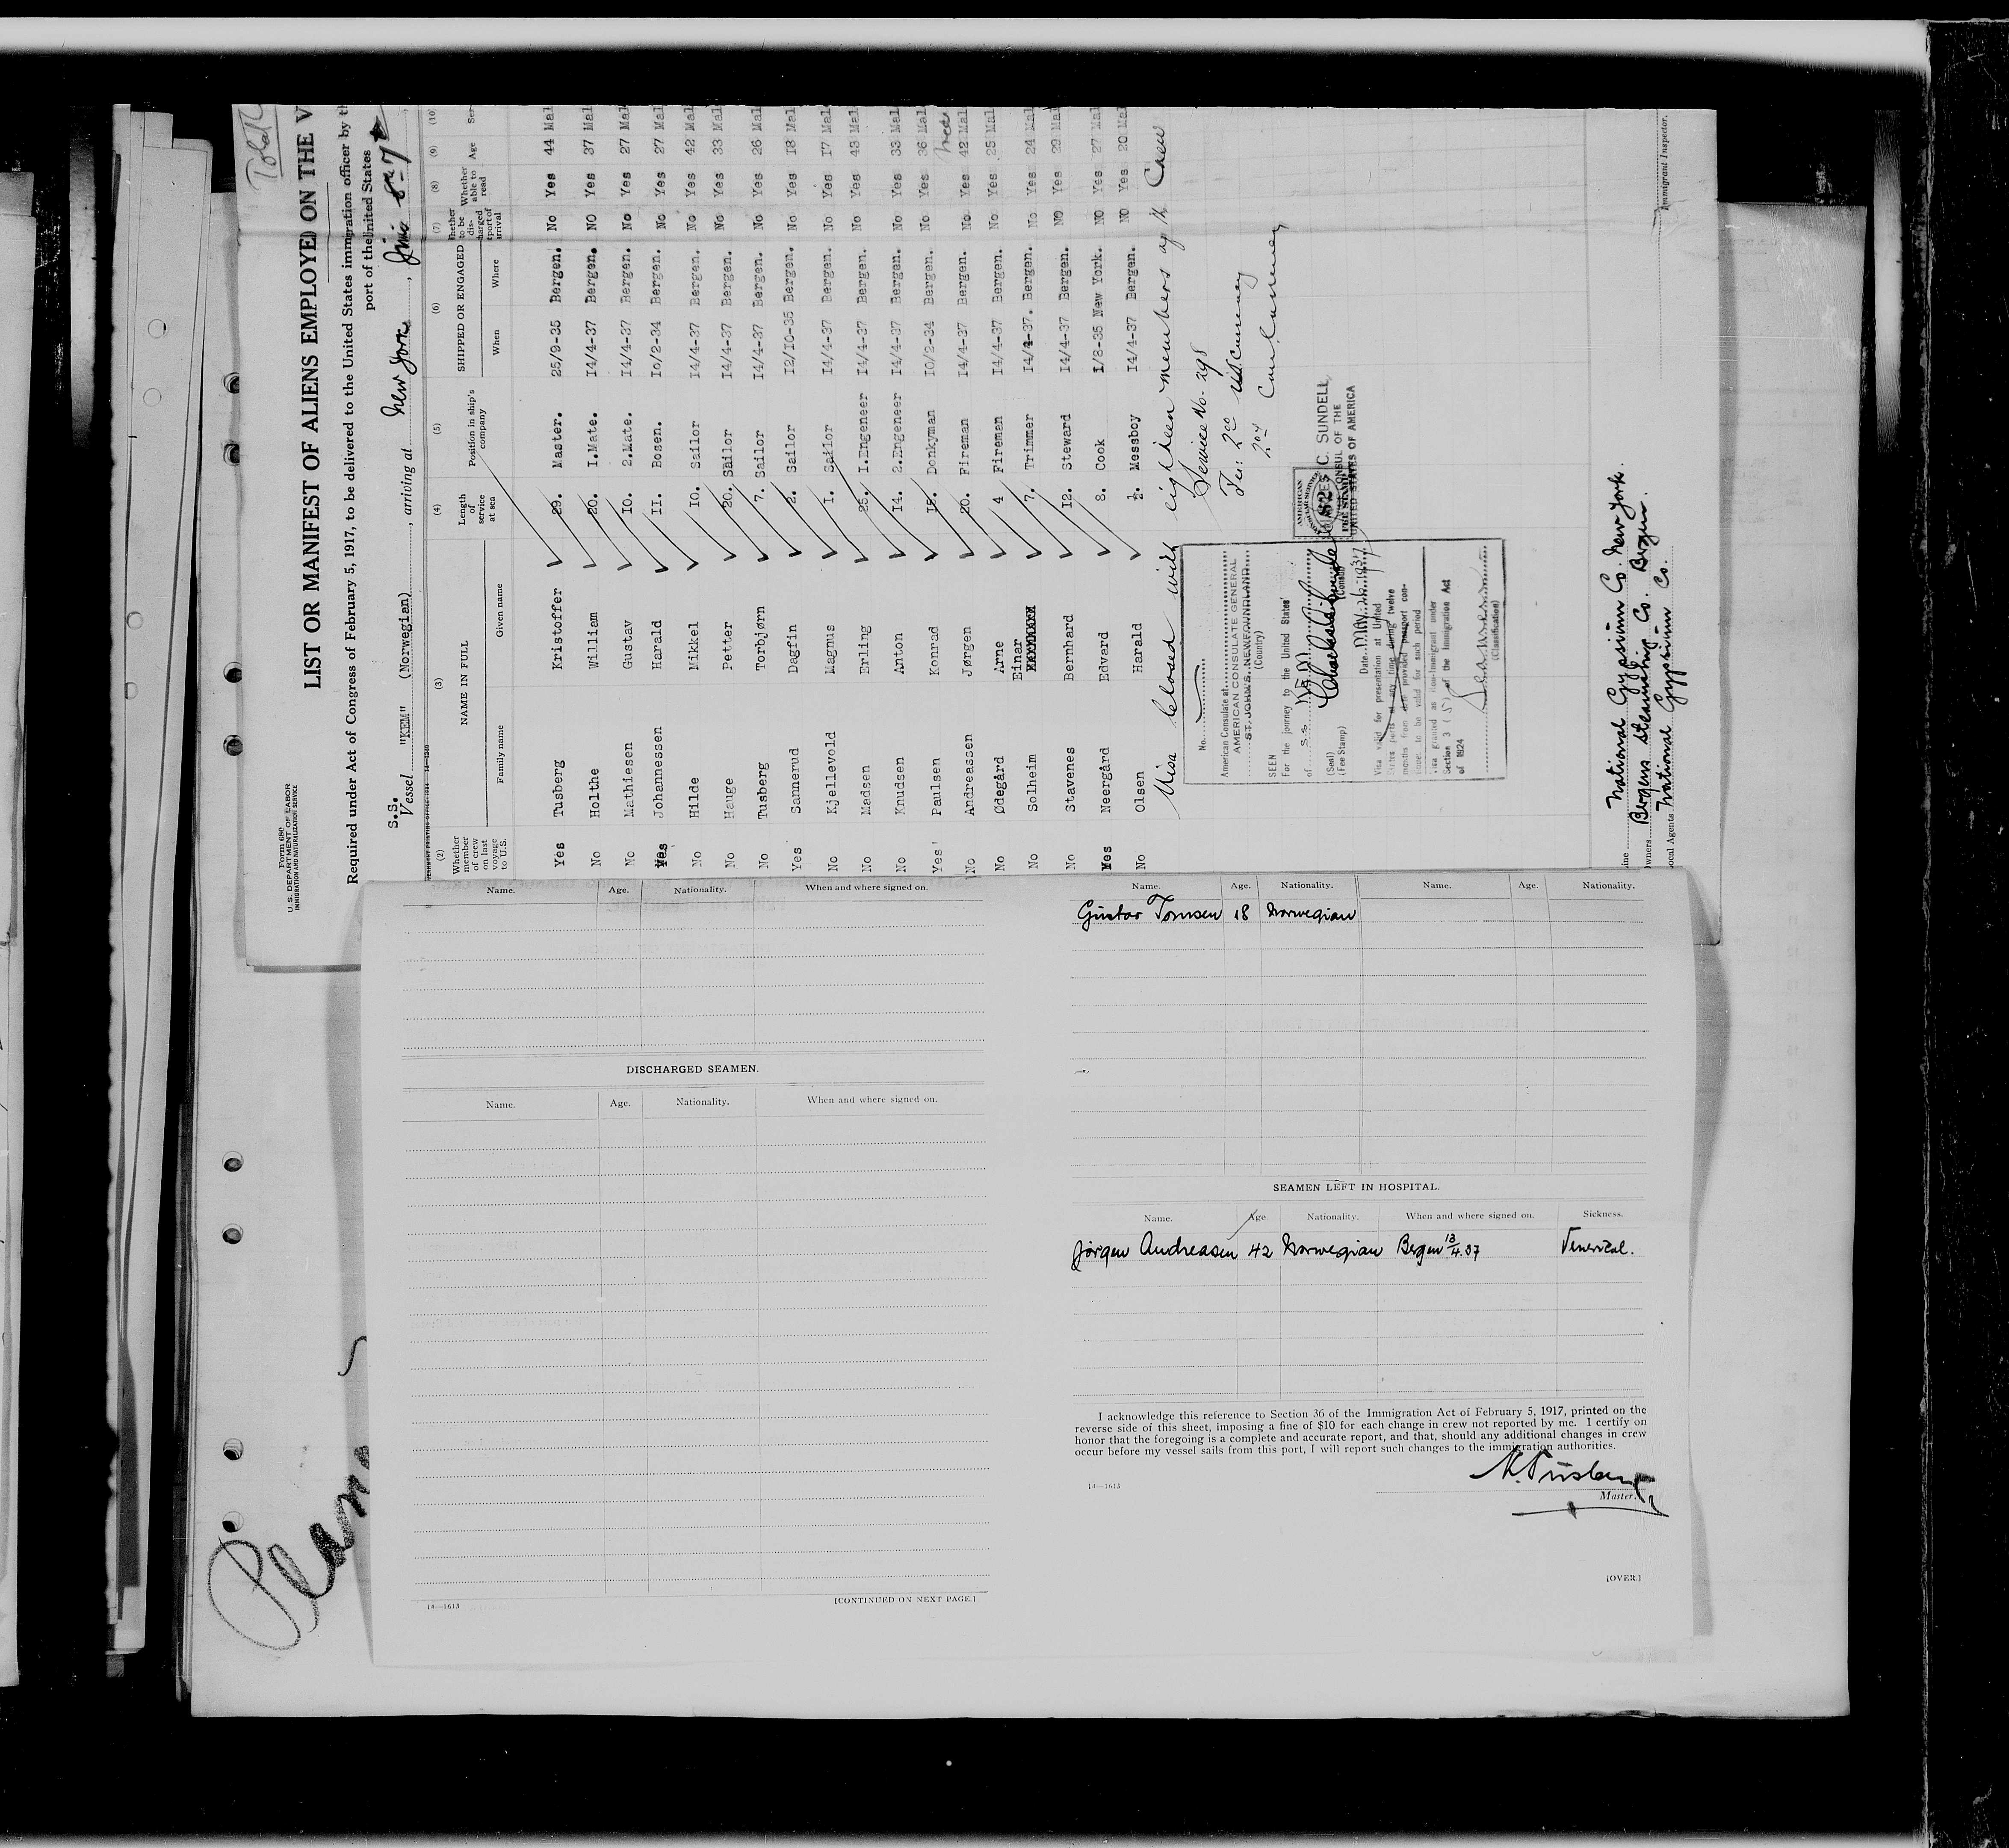 Total
Form 680
U.S. DEPARTMENT OF LABOR
IMMIGRATION AND NATURALIZATION SERVICE
LIST OR MANIFEST OF ALIENS EMPLOYED ON THE V
Required under Act of Congress of February 5, 1917, to be delivered to the United States immigration officer by th
port of the United States
S.S.
Vessel "KEM" (Norwegian), arriving at New York,
(2) (3) (4) (5) (6) (7) (8) (9) (10
Whether member of crew on last voyage to U.S. NAME IN FULL Length of service at sea Position in ship's company SHIPPED OR ENGAGED Whether to be discharged at port of arrival Whether able to read Age Sex
Family name Given name When Where
Yes Tusberg Kristoffer 29. Master. 25/9-35 Bergen. No Yes 44 Mal
No Holthe William 20. I.Mate. 14/4-37 Bergen. NO Yes 37 Mal
No Mathiesen Gustav IO. 2.Mate. I4/4-37 Bergen. No Yes 27 Mal
Yes Johannessen Harald II. Bosen. Io/2-34 Bergen. No Yes 27 Mal
No Hilde Mikkel IO. Sailor I4/4-37 Bergen. No Yes 42 Mal
No Hauge Petter 20. Sailor I4/4-37 Bergen. No Yes 33 Mal
No Tusberg Torbjørn 7. Sailor I4/4-37 Bergen. No Yes 26 Mal
Yes Sannerud Dagfin 2. Sailor I2/IO-35 Bergen. No Yes I8 Mal
No Kjellevold Magnus I. Sailor I4/4-37 Bergen. No Yes I7 Mal
No Madsen Erling 25. I.Engeneer I4/4-37 Bergen. No Yes 43 Mal
No Knudsen Anton I4. 2.Engeneer I4/4-37 Bergen. No Yes 33 Mal
Yes Paulsen Konrad Donkyman IO/2-34 Bergen. No Yes 36 Mal
No Andreassen Jørgen 20. Fireman I4/4-37 Bergen. No Yes 42 Mal
No Ødegård Arne 4 Fireman I4/4-37 Bergen. No Yes 25 Mal
No Solheim Einar 7. Trimmer I4/4-37. Bergen. No Yes 24 Mal
No Stavenes Bernhard I2. Steward I4/4-37 Bergen. NO Yes 29 Mal
Yes Neergård Edvard 8. Cook I/8-35 New York. NO Yes 27 Mal
No Olsen Harald ½. Messboy I4/4-37 Bergen. NO Yes 20 Mal
Visa closed with eighteen members of the Crew
Service No. 298
Fee: 2.00 U.S. Currency
No.
American Consulate at
AMERICAN CONSULATE GENERAL
ST. JOHN'S, NEWFOUNDLAND
(Country)
SEEN
For the journey to the United States
of S.S. KEM
(Seal)
(Fee Stamp)
(Consul)
Date MAY 26 1937
Visa valid for presentation at United
States ports at any time during twelve
months from date provided passport con-
tinues to be valid for such period
Visa granted as Non-Immigrant under
Section 3 (5) of the Immigration Act
of 1924
Seaman
(Classification)
AMERICAN
C. SUNDELL
CONSUL OF THE
UNITED STATES OF AMERICA
Line National Gypsium Co. New York.
Owners Bergens Steamship Co. Bergen.
Local Agents National Gypsium Co.
Immigrant Inspector.
Name. Age. Nationality. When and where signed on.
DISCHARGED SEAMEN.
Name. Age. Nationality. When and where signed on.
14—1613 [CONTINUED ON NEXT PAGE.]
Name. Age. Nationality. Name. Age. Nationality.
Gustav Tomsen 18 Norwegian
SEAMEN LEFT IN HOSPITAL.
Name. Age Nationality. When and where signed on. Sickness.
Jørgen Andreasen 42 Norwegian Bergen 13/4.37 Venerical.
I acknowledge this reference to Section 36 of the Immigration Act of February 5, 1917, printed on the
reverse side of this sheet, imposing a fine of $10 for each change in crew not reported by me. I certify on
honor that the foregoing is a complete and accurate report, and that, should any additional changes in crew
occur before my vessel sails from this port, I will report such changes to the immigration authorities.
K. Tusberg
14—1613 Master.
[OVER.]